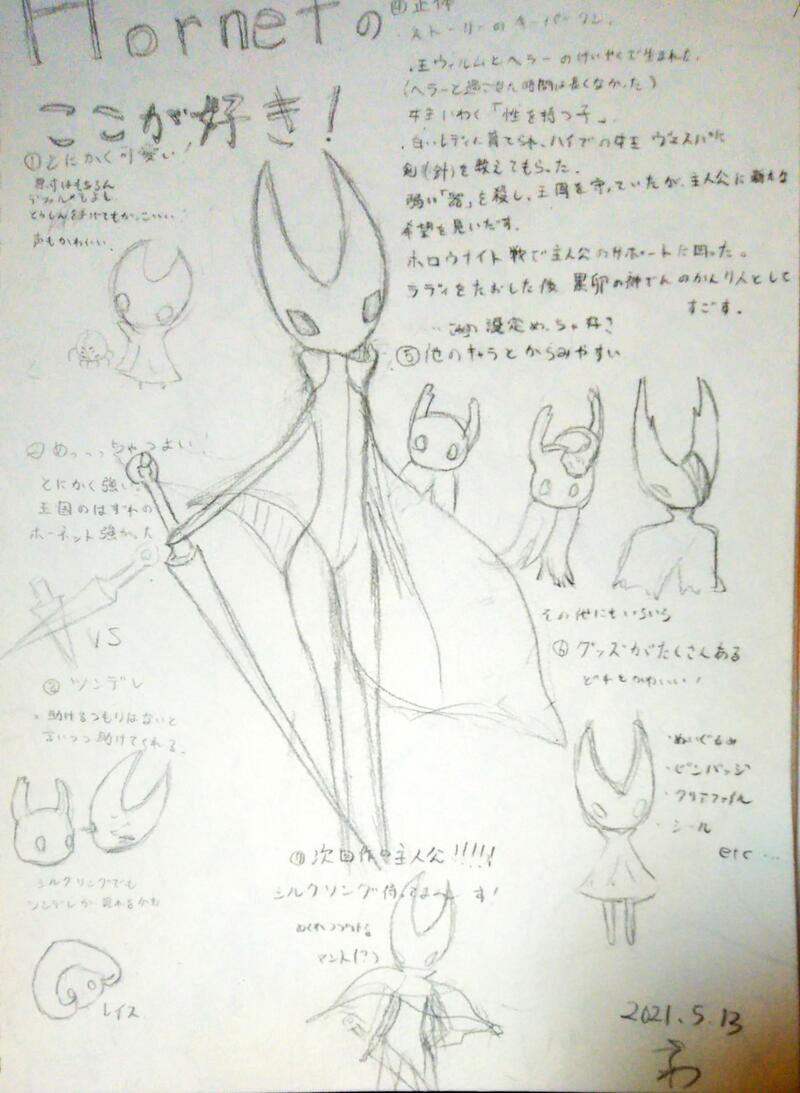 Hornetの
ここが好き!
①とにかく可愛い!
原寸はもちろん
デフォルメもよし
声もかわいい
②めっっっちゃつよい!
とにかく強い
王国のはずれの
ホーネット強かった
VS
③ツンデレ
・助けるつもりはないと
言いつつ助けてくれる。
シルクソングでも
ツンデレが見れるかも
レイス
④正体
・ストーリーのキーパーソン
・王ウィルムとヘラーのけいやくで生まれた。
(ヘラーと過ごせた時間は長くなかった)
いわく「性を持つ子」。
・白いレディに育てられ、ハイブの女王 ヴェスパに
剣(針)を教えてもらった。
弱い「器」を殺し、王国を守っていたが、主人公に新たな
希望を見いだす。
ホロウナイト戦で主人公のサポートに回った。
ラディをたおした後 黒卵の神でんのかんり人として
すごす。
設定めっちゃ好き
⑤他のキャラとからみやすい
その他にもいろいろ
⑥グッズがたくさんある
どれもかわいい!
・ぬいぐるみ
・ピンバッジ
・クリアファイル
・シール
etc...
⑦次回作の主人公!!!!!
シルクソング待ってまーす!
マント(?)
2021.5.13